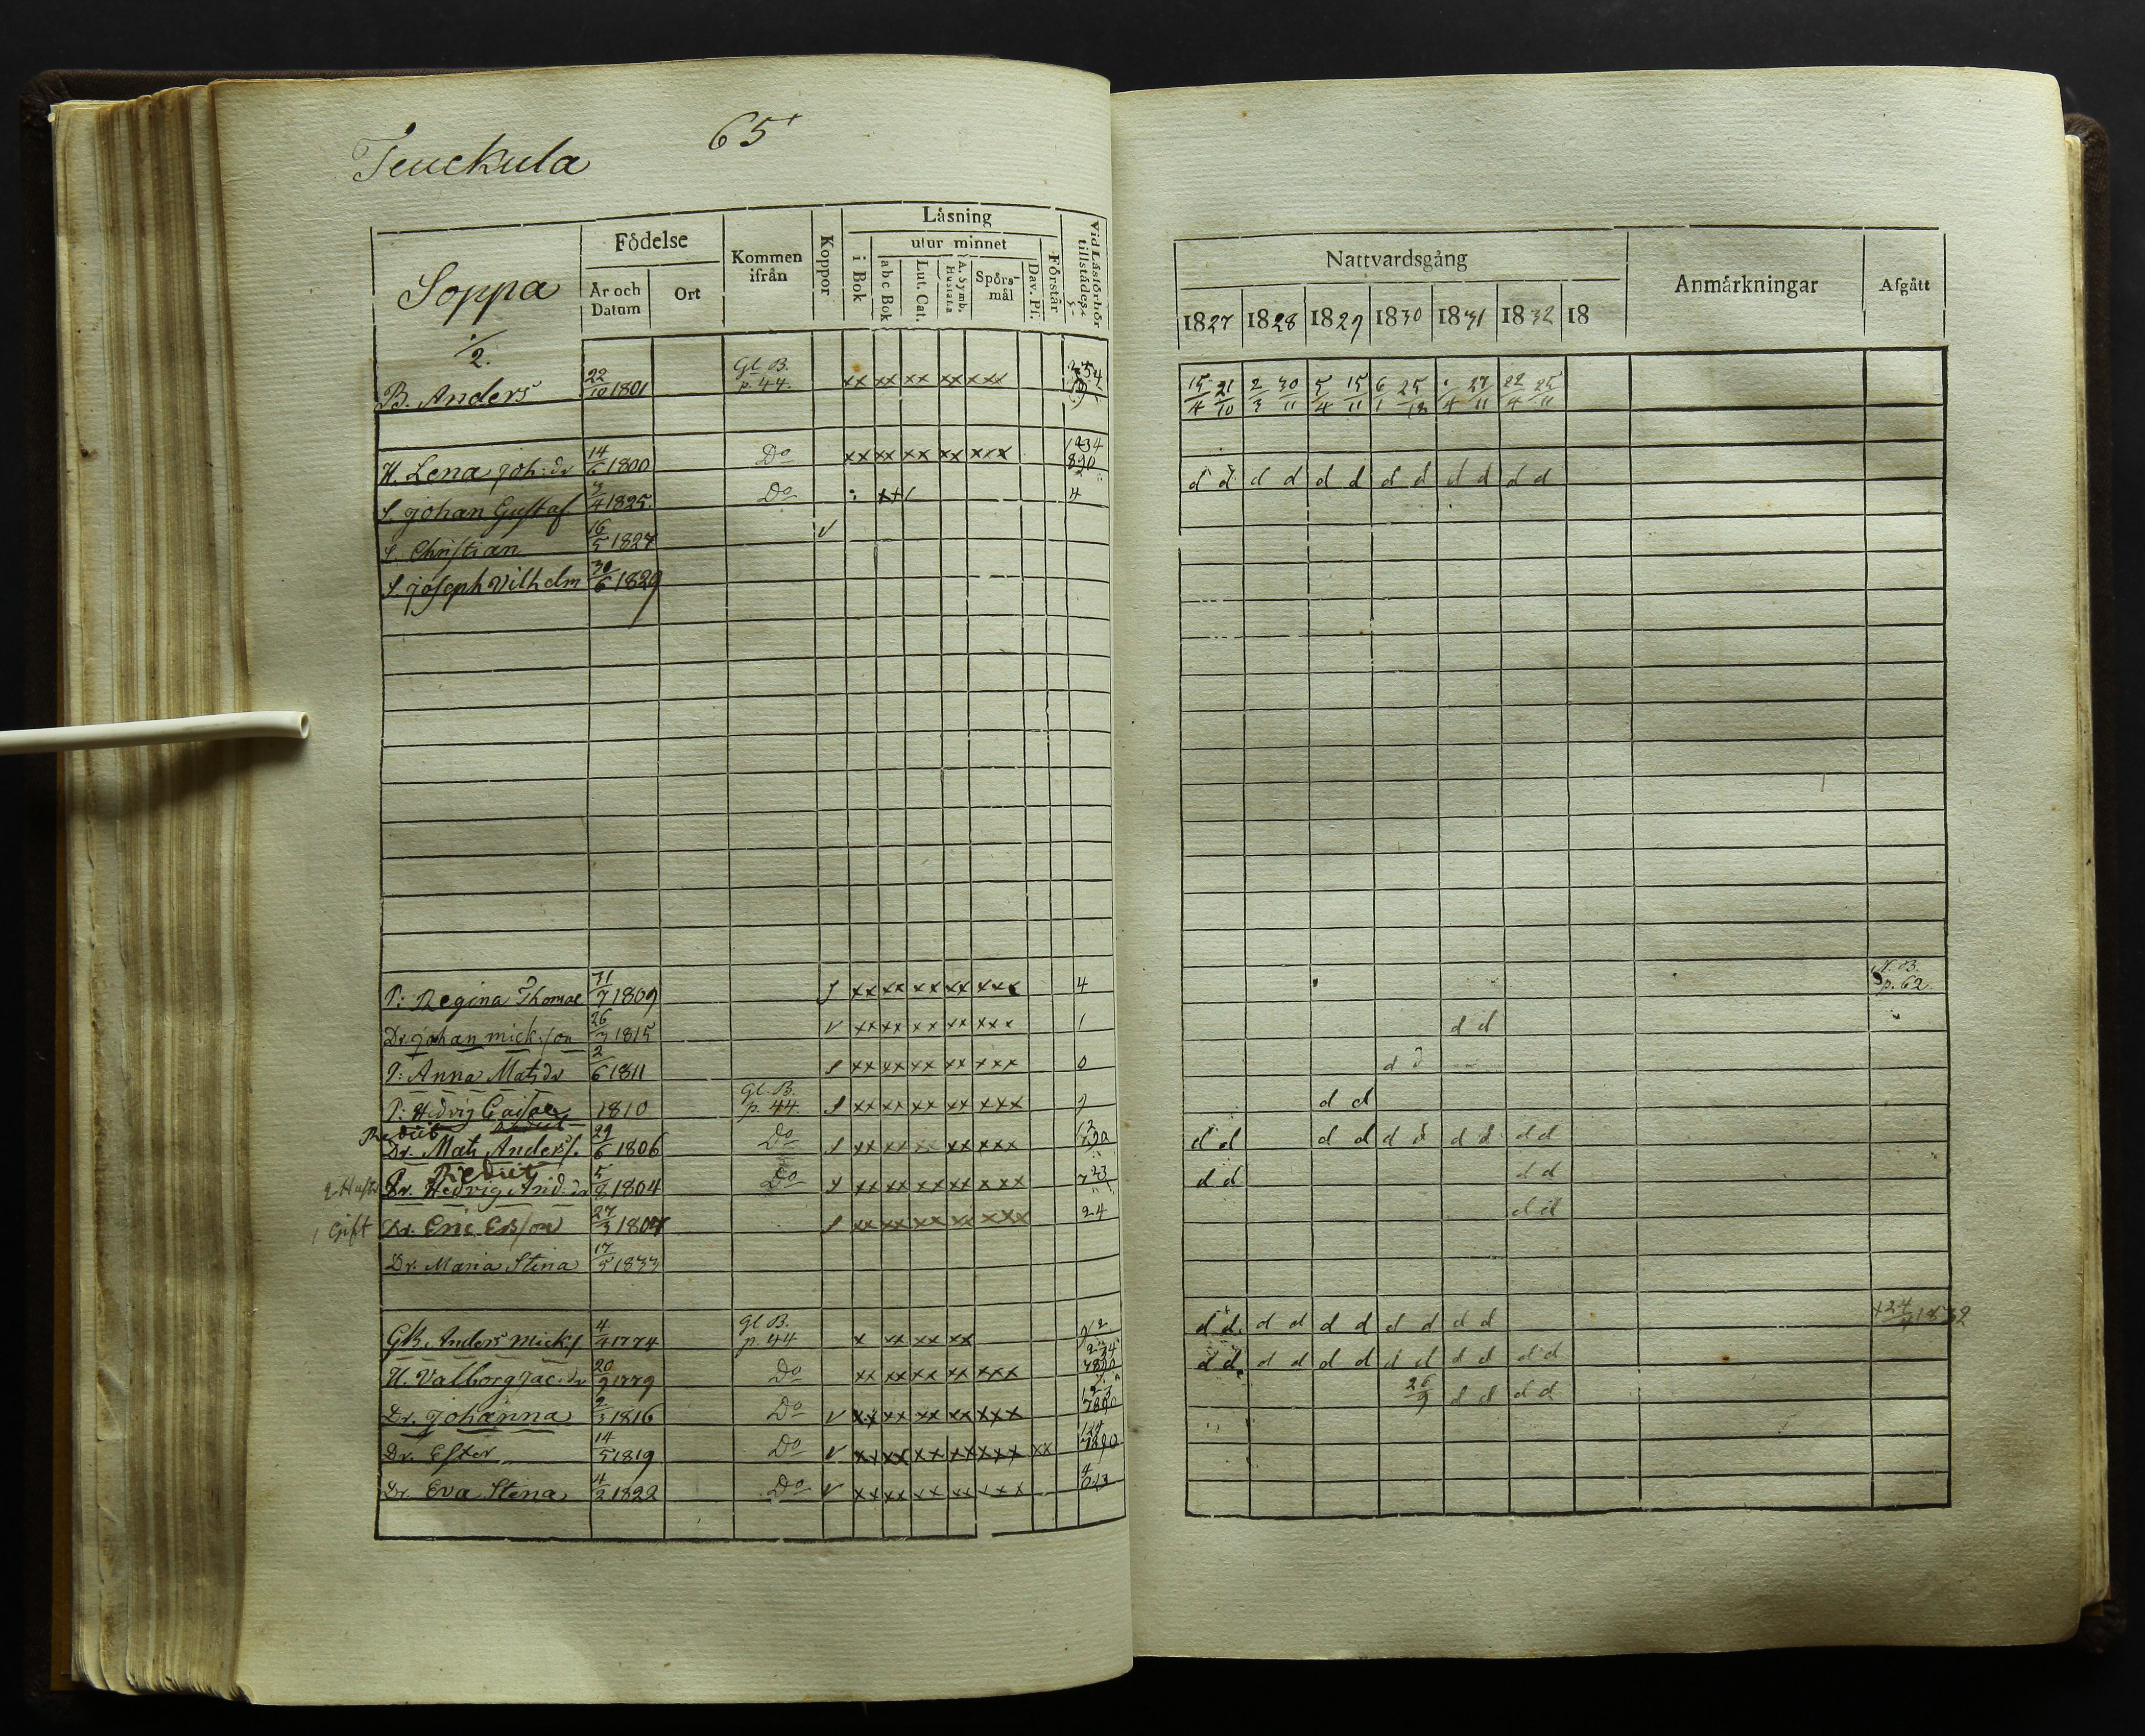 Teuckula 65
Soppa
1/2.
Födelse
År och Datum
Ort
Kommen ifrån
Koppor
Läsning
utur minnet
i Bok
abc Bok
Lut. Cat.
A. Symb.
Hustafla
Spörsmål
Dav. Ps.
Förstår
Vid Läsförhör tillstädes
Nattvardsgång
1827 1828 1829 1830 1831 1832 18
Anmärkningar
Afgått
B. Anders 22/10 1801 Gl. B. p. 44. xx xx xx xx xxx 15/4 21/10 2/3 30/11 5/4 15/11 6/1 25/12 27/11 22/4 25/11
H. Lena Joh:dr 14/6 1800 Do xx xx xx xx xxx d d d d d d d d d d d d
S. Johan Gustaf 3/4 1825. Do 4
S. Christian 16/5 1827 v
S. Joseph Vilhelm 30/6 1829
P: Regina Thomae 31/7 1809 s xx xx xx xx xxx 4 N. B. p. 62.
Dr. Johan Mick:son 26/3 1815 v xx xx xx xx xxx 1 d d
P: Anna Matsdr 2/6 1811 s xx xx xx xx xxx 0 d d
P: Hedvig 1810 Gl. B. p. 44. s xx xx xx xx xxx d d
Dr. Mats Anders. 29/6 1806 Do s xx xx xx xx xxx d d d d d d d d d d
Hedvig And:dr 5/8 1804 Do s xx xx xx xx xxx 723 d d d d
1 Gift Dr. Eric Ersson 27/3 1807 s xx xx xx xx xxx 24 d d
Dr. Maria Stina 17/5 1833
GB. Anders Micks. 4/9 1774 Gl. B. p. 44 x xx xx xx d d d d d d d d d d +24/4 1832
H. Valborg Jac:dr 20/9 1779 Do xx xx xx xx xxx d d d d d d d d d d d d
Dr. Johanna 2/3 1816 Do v xx xx xx xx xxx 26/9 d d d d
Dr. Ester 14/5 1819 Do v xx xx xx xx xxx xx
Dr. Eva Stina 4/2 1822 Do v xx xx xx xx xxx